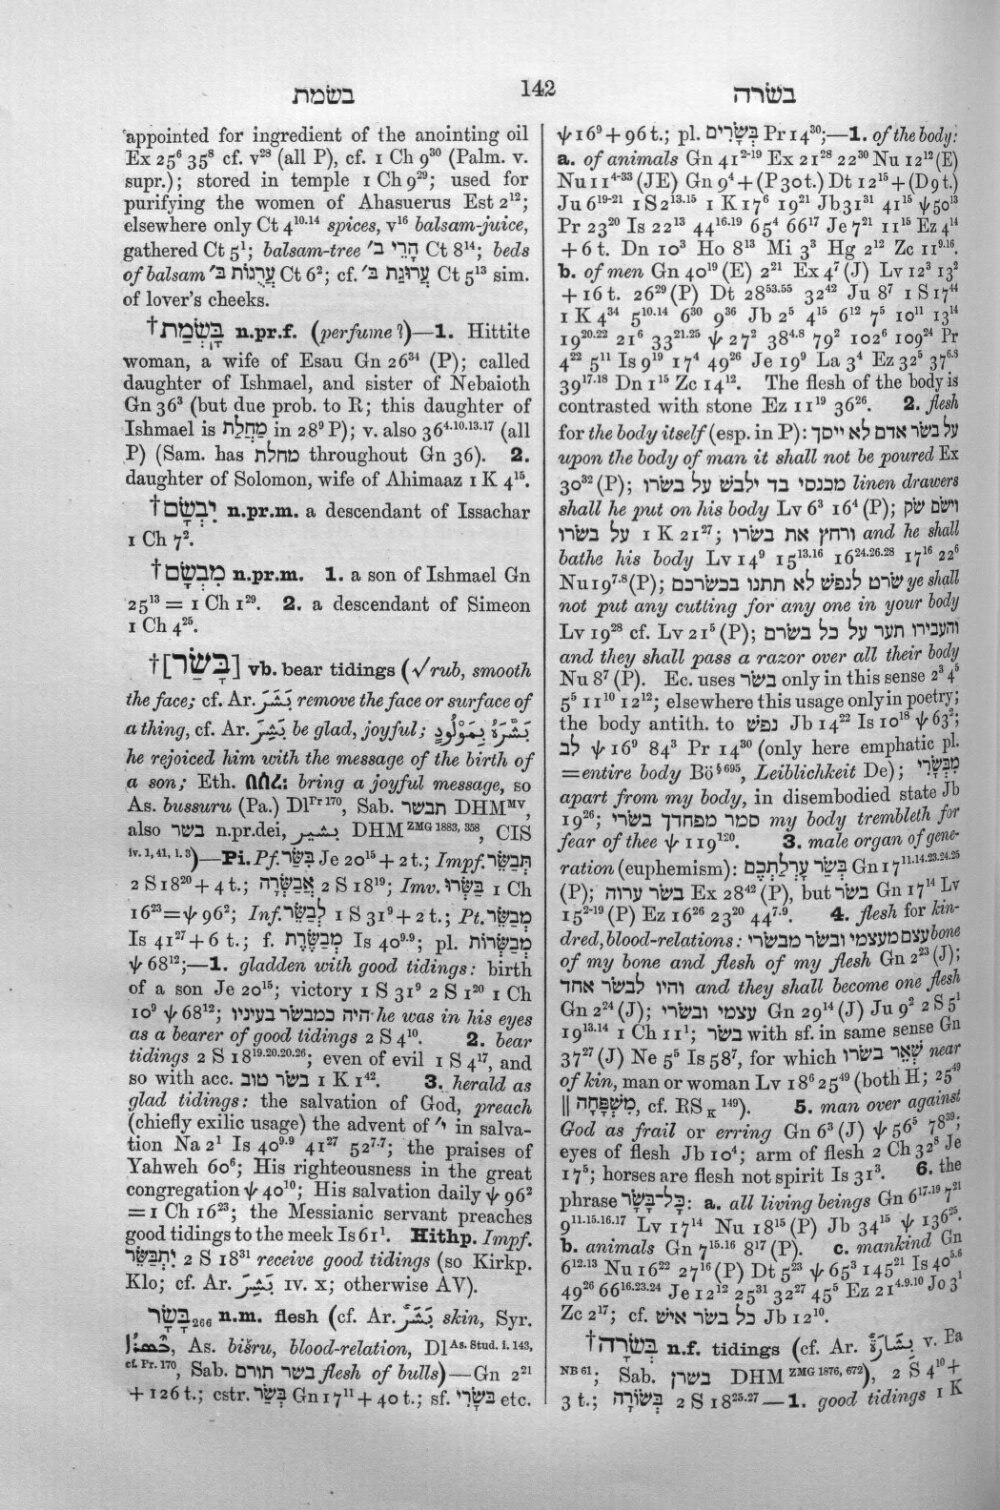 בשׂמת
142
בשׂרה
appointed for ingredient of the anointing oil
Ex 25⁶ 35⁸ cf. v²⁸ (all P), cf. 1 Ch 9³⁰ (Palm. v.
supr.); stored in temple 1 Ch 9²⁹; used for
purifying the women of Ahasuerus Est 2¹²;
elsewhere only Ct 4¹⁰·¹⁴ spices, v¹⁶ balsam-juice,
gathered Ct 5¹; balsam-tree הָרֵי ב׳ Ct 8¹⁴; beds
of balsam עֲרֻגוֹת ב׳ Ct 6²; cf. עֲרוּגַת ב׳ Ct 5¹³ sim.
of lover's cheeks.
†בָּשְׂמַת n.pr.f. (perfume?)—1. Hittite
woman, a wife of Esau Gn 26³⁴ (P); called
daughter of Ishmael, and sister of Nebaioth
Gn 36³ (but due prob. to R; this daughter of
Ishmael is מַחֲלַת in 28⁹ P); v. also 36⁴·¹⁰·¹³·¹⁷ (all
P) (Sam. has מחלת throughout Gn 36). 2.
daughter of Solomon, wife of Ahimaaz 1 K 4¹⁵.
†יִבְשָׂם n.pr.m. a descendant of Issachar
1 Ch 7².
†מִבְשָׂם n.pr.m. 1. a son of Ishmael Gn
25¹³ = 1 Ch 1²⁹. 2. a descendant of Simeon
1 Ch 4²⁵.
†[בָּשַׂר] vb. bear tidings (√rub, smooth
the face; cf. Ar. بَشَرَ remove the face or surface of
a thing, cf. Ar. بَشِرَ be glad, joyful; بَشَّرَهُ بِمَوْلُودٍ
he rejoiced him with the message of the birth of
a son; Eth. በሰረ: bring a joyful message, so
As. bussuru (Pa.) Dl Pr 170, Sab. תבשר DHM MV,
also בשר n.pr.dei, بشير DHM ZMG 1883, 358, CIS
iv. 1, 41, 1. 3)—Pi. Pf. בִּשַּׂר Je 20¹⁵ + 2 t.; Impf. תְּבַשֵּׂר
2 S 18²⁰ + 4 t.; אֲבַשְּׂרָה 2 S 18¹⁹; Imv. בַּשְּׂרוּ 1 Ch
16²³ = ψ 96²; Inf. לְבַשֵּׂר 1 S 31⁹ + 2 t.; Pt. מְבַשֵּׂר
Is 41²⁷ + 6 t.; f. מְבַשֶּׂרֶת Is 40⁹·⁹; pl. מְבַשְּׂרוֹת
ψ 68¹²;—1. gladden with good tidings: birth
of a son Je 20¹⁵; victory 1 S 31⁹ 2 S 1²⁰ 1 Ch
10⁹ ψ 68¹²; היה כמבשׂר בעיניו he was in his eyes
as a bearer of good tidings 2 S 4¹⁰. 2. bear
tidings 2 S 18¹⁹·²⁰·²⁰·²⁶; even of evil 1 S 4¹⁷, and
so with acc. בשׂר טוב 1 K 1⁴². 3. herald as
glad tidings: the salvation of God, preach
(chiefly exilic usage) the advent of י׳ in salva-
tion Na 2¹ Is 40⁹·⁹ 41²⁷ 52⁷·⁷; the praises of
Yahweh 60⁶; His righteousness in the great
congregation ψ 40¹⁰; His salvation daily ψ 96²
= 1 Ch 16²³; the Messianic servant preaches
good tidings to the meek Is 61¹. Hithp. Impf.
יִתְבַּשֵּׂר 2 S 18³¹ receive good tidings (so Kirkp.
Klo; cf. Ar. بَشِرَ IV. X; otherwise AV).
בָּשָׂר₂₆₆ n.m. flesh (cf. Ar. بَشَرٌ skin, Syr.
As. bišru, blood-relation, Dl As. Stud. i. 143,
cf. Pr. 170, Sab. בשר תורם flesh of bulls)—Gn 2²¹
+ 126 t.; cstr. בְּשַׂר Gn 17¹¹ + 40 t.; sf. בְּשָׂרִי etc.
ψ 16⁹ + 96 t.; pl. בְּשָׂרִים Pr 14³⁰;—1. of the body:
a. of animals Gn 41²⁻¹⁹ Ex 21²⁸ 22³⁰ Nu 12¹² (E)
Nu 11⁴⁻³³ (JE) Gn 9⁴ + (P 30 t.) Dt 12¹⁵ + (D 9 t.)
Ju 6¹⁹⁻²¹ 1 S 2¹³·¹⁵ 1 K 17⁶ 19²¹ Jb 31³¹ 41¹⁵ ψ 50¹³
Pr 23²⁰ Is 22¹³ 44¹⁶·¹⁹ 65⁴ 66¹⁷ Je 7²¹ 11¹⁵ Ez 4¹⁴
+ 6 t. Dn 10³ Ho 8¹³ Mi 3³ Hg 2¹² Zc 11⁹·¹⁶.
b. of men Gn 40¹⁹ (E) 2²¹ Ex 4⁷ (J) Lv 12³ 13²
+ 16 t. 26²⁹ (P) Dt 28⁵³·⁵⁵ 32⁴² Ju 8⁷ 1 S 17⁴⁴
1 K 4³⁴ 5¹⁰·¹⁴ 6³⁰ 9³⁶ Jb 2⁵ 4¹⁵ 6¹² 7⁵ 10¹¹ 13¹⁴
19²⁰·²² 21⁶ 33²¹·²⁵ ψ 27² 38⁴·⁸ 79² 102⁶ 109²⁴ Pr
4²² 5¹¹ Is 9¹⁹ 17⁴ 49²⁶ Je 19⁹ La 3⁴ Ez 32⁵ 37⁶·⁸
39¹⁷·¹⁸ Dn 1¹⁵ Zc 14¹². The flesh of the body is
contrasted with stone Ez 11¹⁹ 36²⁶. 2. flesh
for the body itself (esp. in P): על בשׂר אדם לא ייסך
upon the body of man it shall not be poured Ex
30³² (P); מכנסי בד ילבשׁ על בשׂרו linen drawers
shall he put on his body Lv 6³ 16⁴ (P); וישׂם שׂק
על בשׂרו 1 K 21²⁷; ורחץ את בשׂרו and he shall
bathe his body Lv 14⁹ 15¹³·¹⁶ 16²⁴·²⁶·²⁸ 17¹⁶ 22⁶
Nu 19⁷·⁸ (P); שׂרט לנפשׁ לא תתנו בבשׂרכם ye shall
not put any cutting for any one in your body
Lv 19²⁸ cf. Lv 21⁵ (P); והעבירו תער על כל בשׂרם
and they shall pass a razor over all their body
Nu 8⁷ (P). Ec. uses בשׂר only in this sense 2³ 4⁵
5⁵ 11¹⁰ 12¹²; elsewhere this usage only in poetry;
the body antith. to נפשׁ Jb 14²² Is 10¹⁸ ψ 63²;
לב ψ 16⁹ 84³ Pr 14³⁰ (only here emphatic pl.
= entire body Bö § 695, Leiblichkeit De); מִבְּשָׂרִי
apart from my body, in disembodied state Jb
19²⁶; סמר מפחדך בשׂרי my body trembleth for
fear of thee ψ 119¹²⁰. 3. male organ of gene-
ration (euphemism): בְּשַׂר עָרְלַתְכֶם Gn 17¹¹·¹⁴·²³·²⁴·²⁵
(P); בשׂר ערוה Ex 28⁴² (P), but בשׂר Gn 17¹⁴ Lv
15²⁻¹⁹ (P) Ez 16²⁶ 23²⁰ 44⁷·⁹. 4. flesh for kin-
dred, blood-relations: עצם מעצמי ובשׂר מבשׂרי bone
of my bone and flesh of my flesh Gn 2²³ (J);
והיו לבשׂר אחד and they shall become one flesh
Gn 2²⁴ (J); עצמי ובשׂרי Gn 29¹⁴ (J) Ju 9² 2 S 5¹
19¹³·¹⁴ 1 Ch 11¹; בשׂר with sf. in same sense Gn
37²⁷ (J) Ne 5⁵ Is 58⁷, for which שְׁאֵר בשׂרו near
of kin, man or woman Lv 18⁶ 25⁴⁹ (both H; 25⁴⁹
|| מִשְׁפָּחָה, cf. RS K 149). 5. man over against
God as frail or erring Gn 6³ (J) ψ 56⁵ 78³⁹;
eyes of flesh Jb 10⁴; arm of flesh 2 Ch 32⁸ Je
17⁵; horses are flesh not spirit Is 31³. 6. the
phrase כָּל־בָּשָׂר: a. all living beings Gn 6¹⁷·¹⁹ 7²¹
9¹¹·¹⁵·¹⁶·¹⁷ Lv 17¹⁴ Nu 18¹⁵ (P) Jb 34¹⁵ ψ 136²⁵.
b. animals Gn 7¹⁵·¹⁶ 8¹⁷ (P). c. mankind Gn
6¹²·¹³ Nu 16²² 27¹⁶ (P) Dt 5²³ ψ 65³ 145²¹ Is 40⁵·⁶
49²⁶ 66¹⁶·²³·²⁴ Je 12¹² 25³¹ 32²⁷ 45⁵ Ez 21⁴·⁹·¹⁰ Jo 3¹
Zc 2¹⁷; cf. כל בשׂר אישׁ Jb 12¹⁰.
†בְּשׂרָה n.f. tidings (cf. Ar. بِشَارَةٌ v. Ba
NB 61; Sab. בשרן DHM ZMG 1876, 672), 2 S 4¹⁰ +
3 t.; בְּשׂוֹרָה 2 S 18²⁵·²⁷—1. good tidings 1 K